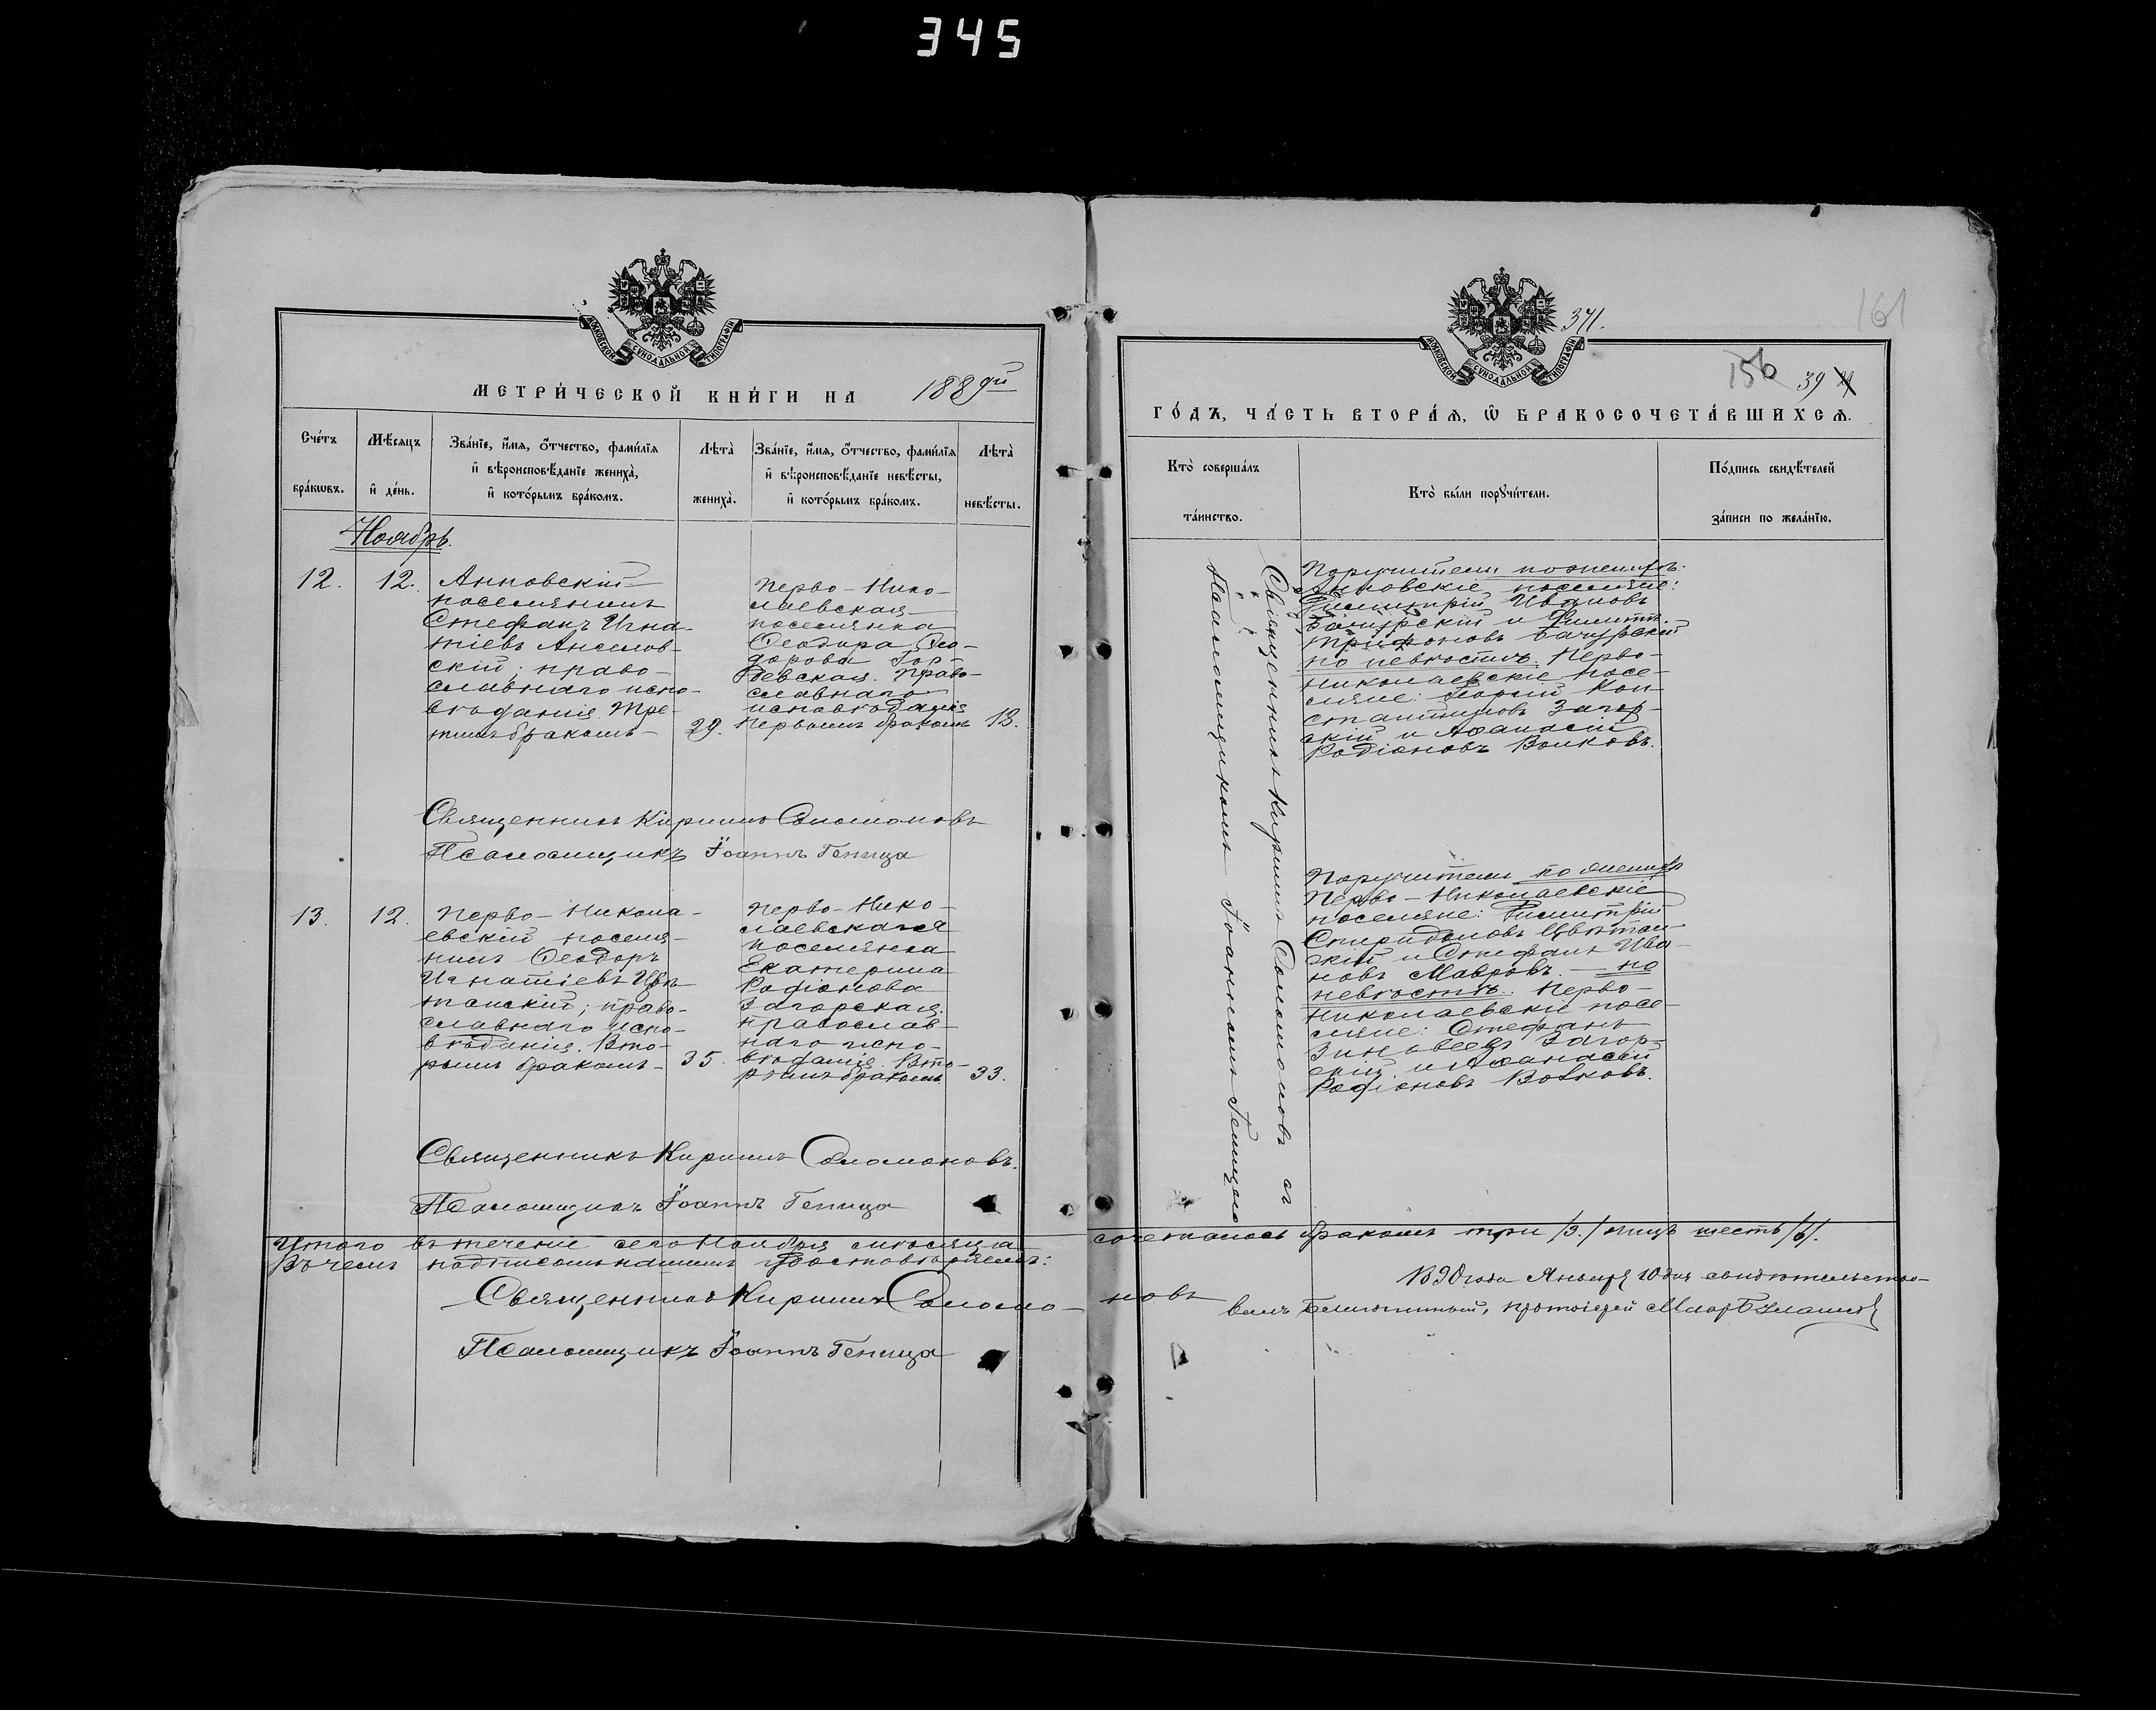 345
МОСКОВСКОЙ СѴНОДАЛЬНОЙ ТИПОГРАФІИ
МЕТРИ́ЧЕСКОЙ КНИ́ГИ НА 1889 ый
Сче́тъ бра́кѡвъ.
Мѣ́сяцъ и҆ де́нь.
Зва́нїе, и҆́мѧ, ѻ҆́тчество, фами́лїѧ
и҆ вѣроисповѣ́данїе жениха̀,
и҆ кото́рымъ бра́комъ.
Лѣта̀ жениха̀.
Зва́нїе, и҆́мѧ, ѻ҆́тчество, фами́лїѧ
и҆ вѣроисповѣ́данїе невѣ́сты,
и҆ кото́рымъ бра́комъ.
Лѣта̀ невѣ́сты.
Ноябрь.
12.
12.
Анновскій
поселянинъ
Стефанъ Игна-
тіевъ
скій; право-
славнаго испо-
вѣданія. Тре-
тимъ бракомъ
29.
Перво-Нико-
лаевская
поселянка
Ѳеодора Ѳео-
дорова
Право-
славнаго
исповѣданія
Первымъ бракомъ
18.
Священникъ Кириллъ Соломоновъ
Псаломщикъ Іоаннъ Геница
13.
12.
Перво-Никола-
евскій поселя-
нинъ Ѳеодоръ
Игнатіевъ Цвѣ-
танскій; право-
славнаго испо-
вѣданія. Вто-
рымъ бракомъ
35.
Перво-Нико-
лаевская
поселянка
Екатерина
Родіонова
Загорская.
православ-
наго испо-
вѣданія. Вто-
рымъ бракомъ
33.
Священникъ Кириллъ Соломоновъ.
Псаломщикъ Іоаннъ Геница
Итого въ теченіе сего Ноября мѣсяца
Въ чемъ подписомъ нашимъ удостовѣряемъ:
Священникъ Кириллъ Соломо-
Псаломщикъ Іоаннъ Геница
МОСКОВСКОЙ СѴНОДАЛЬНОЙ ТИПОГРАФІИ
371.
161
156
39
ГО́ДЪ, ЧА́СТЬ ВТОРА́Ѧ, Ѡ҆ БРАКОСОЧЕТА́ВШИХСѦ.
Кто̀ соверша́лъ та́инство.
Кто̀ бы́ли порꙋчи́тели.
По́дпись свидѣ́телей за́писи по жела́нїю.
Священникъ Кириллъ Соломоновъ съ
Псаломщикомъ Іоанномъ Геницею
Поручители по женихѣ:
Анновскіе поселяне:
Димитрій Ивановъ
Бачурскій и Димитр.
Трифоновъ Бачурскій
по невѣстѣ: Перво-
николаевскіе посе-
ляне: Георгій Кон-
стантиновъ Загор-
скій и Аѳанасій
Родіоновъ Волковъ.
Поручители по женихѣ
Перво-Николаевскіе
поселяне: Димитрій
Спиридоновъ Цвѣтан-
скій и Стефанъ Ива-
новъ Мавровъ. — по
невѣстѣ: Перво-
николаевскіе посе-
ляне: Стефанъ
Зиновеевъ Загор-
скій и Аѳанасій
Родіоновъ Волковъ.
сочеталось бракомъ три /3./ лицъ шесть /6/.
новъ
1890 года Января 10 дня свидѣтельство-
валъ Благочинный, протоіерей